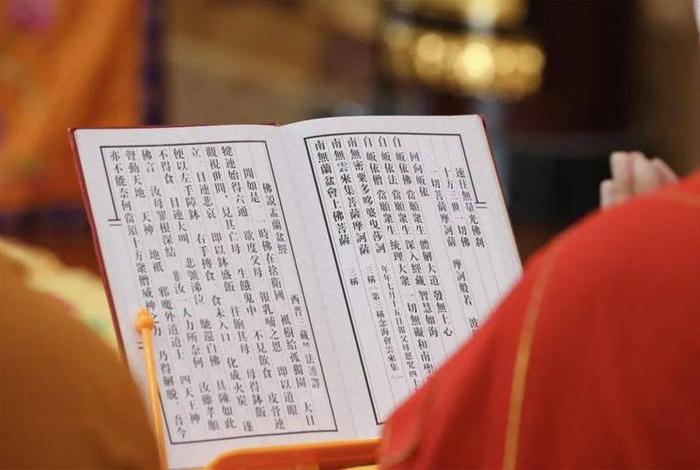 速往無量光佛剎
十方三世一切佛
一切菩薩摩訶薩 摩訶般若波
回向皈依
自皈依佛 當願衆生 體解大道 發無上心
自皈依法 當願衆生 深入經藏 智慧如海
自皈依僧 當願衆生 統理大衆 一切無礙 和南聖
年年七月十五日報父母恩咒四十
南無密多哆婆曳莎訶 三稱
第一稱念海會雲來集
南無雲來集菩薩摩訶薩
南無蘭盆會上佛菩薩 三稱
佛說盂蘭盆經
西晉三藏竺法護譯
聞如是 一時佛在捨衛國 祇樹給孤獨園 大目
犍連始得六通 欲度父母 報乳哺之恩 即以道眼
觀視世間 見其亡母 生餓鬼中 不見飲食 皮骨連
立 目連悲哀 即以鉢盛飯 往餉其母 母得鉢飯
便以左手障鉢 右手摶食 食未入口 化成火炭 遂
不得食 目連大叫 悲號涕泣 馳還白佛 具陳如此
佛言 汝母罪根深結 非汝一人力所奈何 汝雖孝順
聲動天地 天神 地祇 邪魔外道道士 四天王神
亦不能奈何 當須十方衆僧威神之力 乃得解脫 吾今